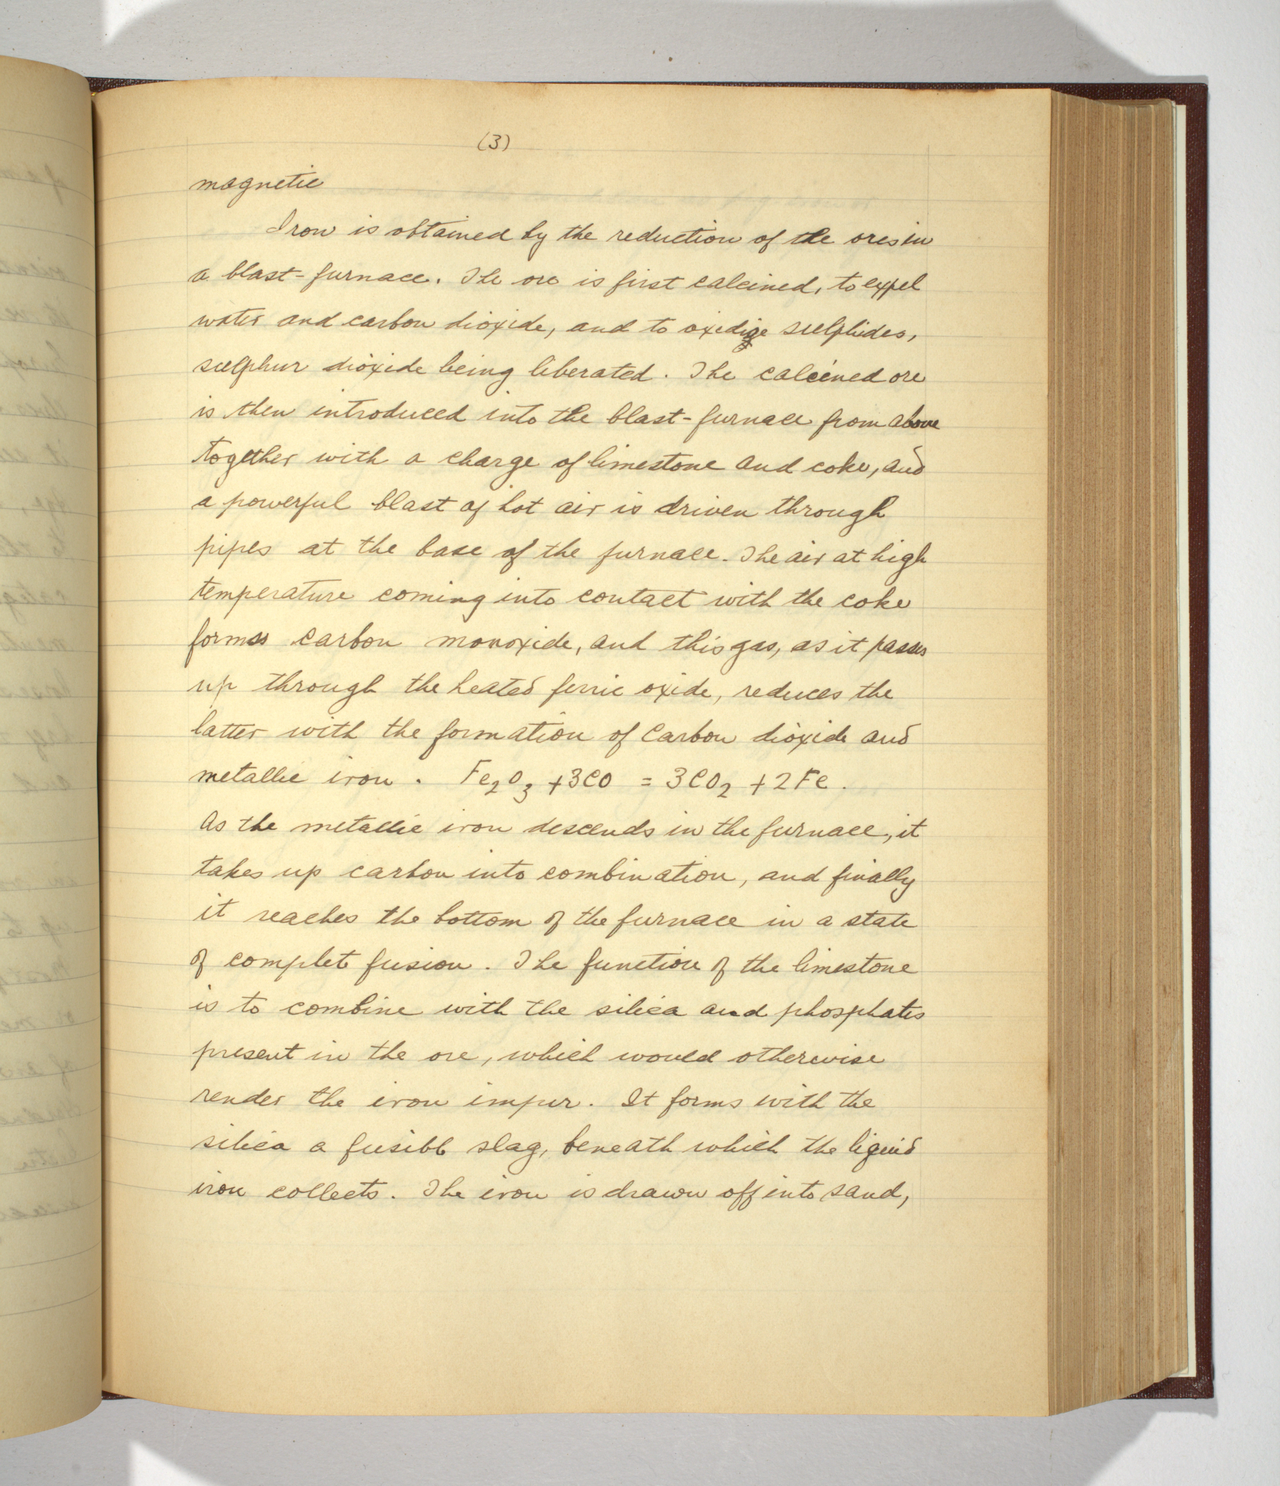 (3)
magnetic
Iron is obtained by the reduction of the ores in
a blast-furnace. The ore is first calcined, to expel
water and carbon dioxide, and to oxidize sulphides,
sulphur dioxide being liberated. The calcined ore
is then introduced into the blast-furnace from above
together with a charge of limestone and coke, and
a powerful blast of hot air is driven through
pipes at the base of the furnace. The air at high
temperature coming into contact with the coke
forms carbon monoxide, and this gas, as it passes
up through the heated ferric oxide, reduces the
latter with the formation of Carbon dioxide and
metallic iron. Fe₂O₃ + 3CO = 3CO₂ + 2Fe.
As the metallic iron descends in the furnace, it
takes up carbon into combination, and finally
it reaches the bottom of the furnace in a state
of complet fusion. The function of the limestone
is to combine with the silica and phosphates
present in the ore, which would otherwise
render the iron impur. It forms with the
silica a fusibl slag, beneath which the liquid
iron collects. The iron is drawn off into sand,